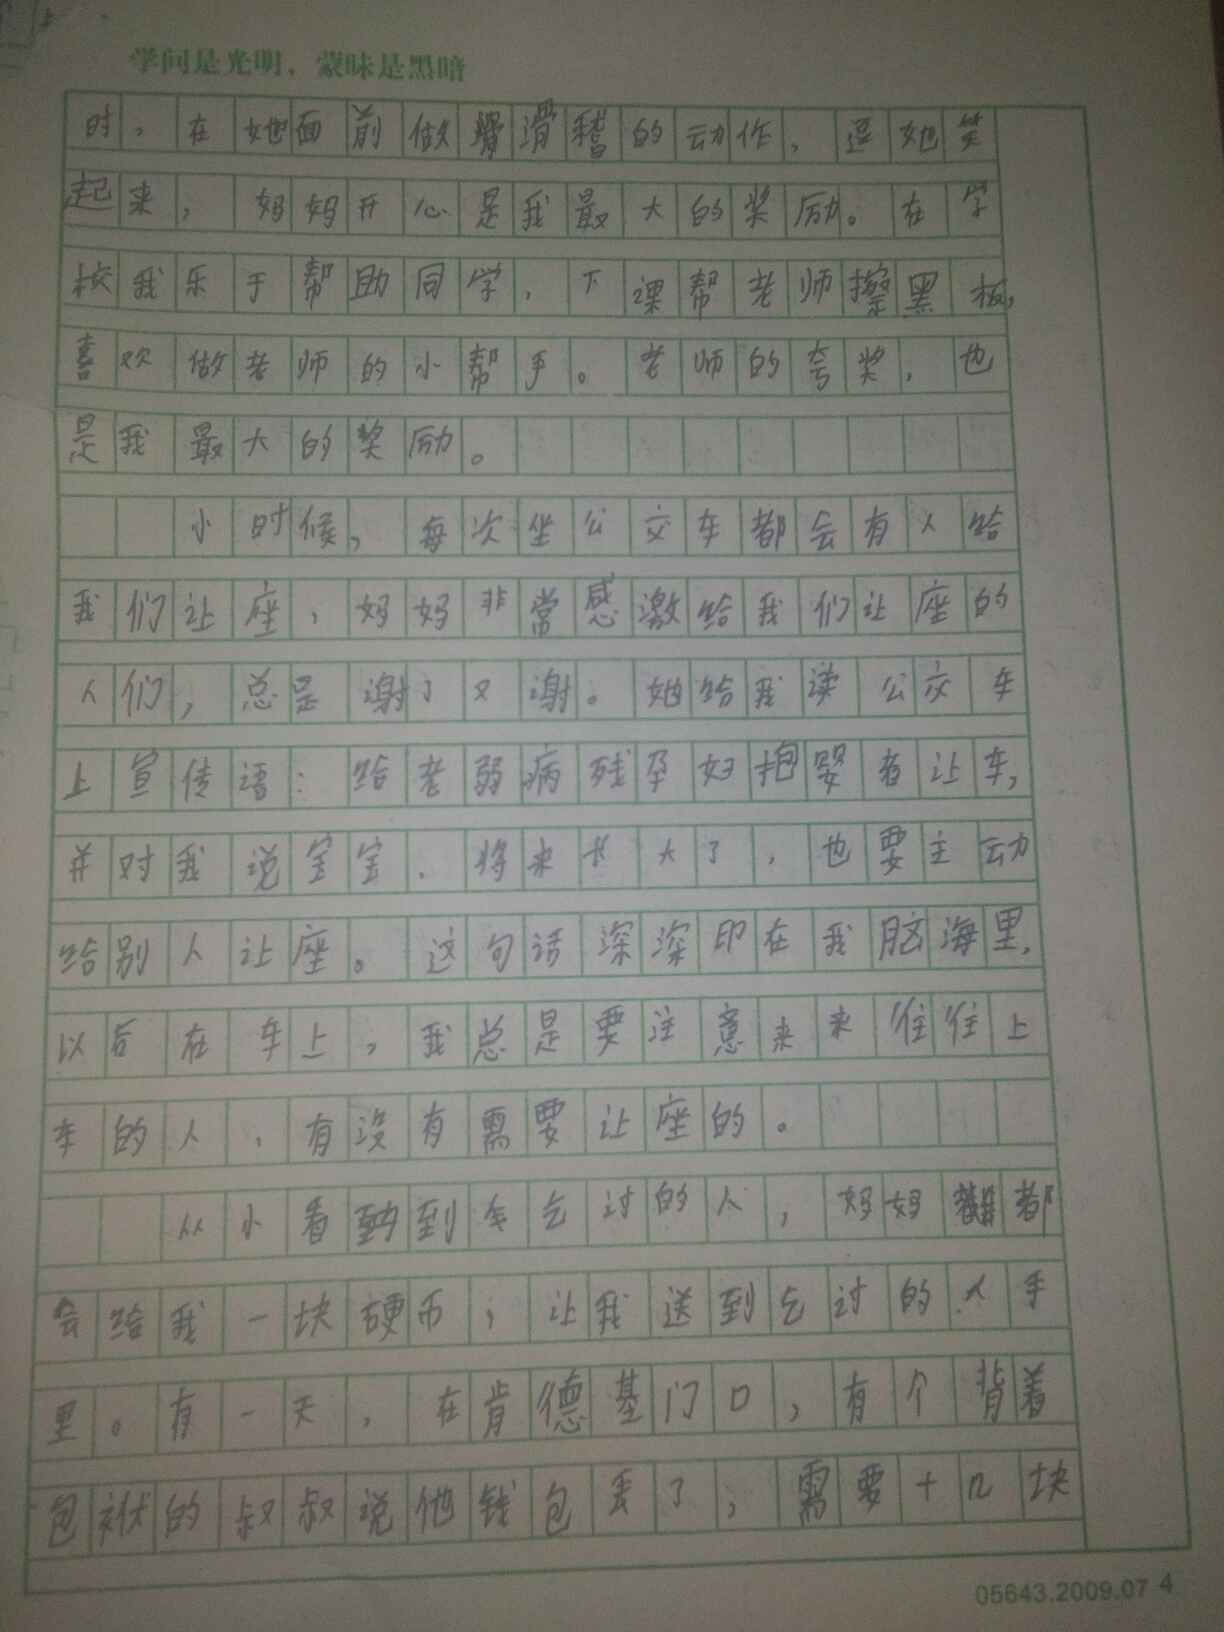 学问是光明，蒙昧是黑暗
时，在她面前做滑稽的动作，逗她笑
起来，妈妈开心是我最大的奖励。在学
校我乐于帮助同学，下课帮老师擦黑板，
喜欢做老师的小帮手。老师的夸奖，也
是我最大的奖励。
小时候，每次坐公交车都会有人给
我们让座，妈妈非常感激给我们让座的
人们，总是谢了又谢。她给我读公交车
上宣传语：给老弱病残孕妇抱婴者让车，
并对我说宝宝，将来长大了，也要主动
给别人让座。这句话深深印在我脑海里，
以后在车上，我总是要注意来来往往上
车的人，有没有需要让座的。
从小看到乞讨的人，妈妈都
会给我一块硬币，让我送到乞讨的人手
里。有一天，在肯德基门口，有个背着
包袱的叔叔说他钱包丢了，需要十几块
05643.2009.07 4